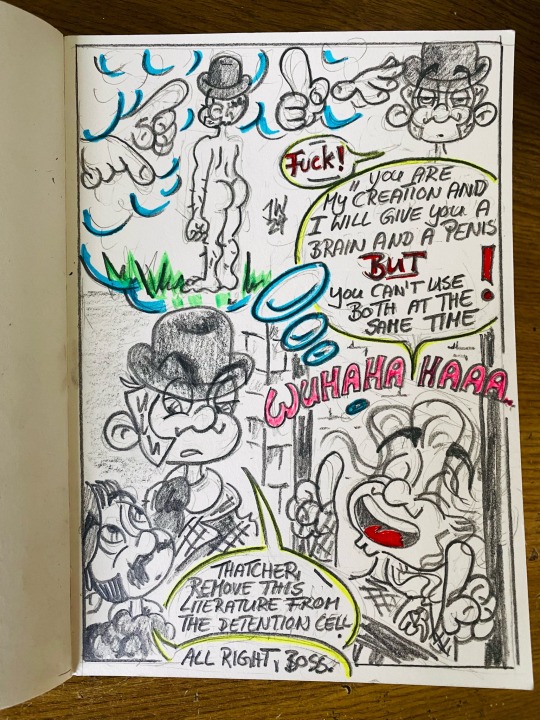 Fuck!
"YOU ARE
MY CREATION AND
I WILL GIVE YOU A
BRAIN AND A PENIS
BUT
YOU CAN'T USE
BOTH AT THE
SAME TIME!
WUHAHA HAAA..
THATCHER,
REMOVE THIS
LITERATURE FROM
THE DETENTION CELL.
ALL RIGHT, BOSS.